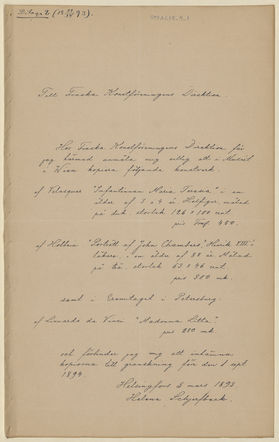 Bilaga 2 (15 93).
Till Finska Konstföreningens Direktion.
Hos Finska Konstföreningens Direktion får
jag härmed anmäla mig villig att i
Wien kopiera följande konstverk.
af Velasquez "Infantinnan Maria Teresia" i en
ålder af 3 a 4 år Helfigur, målad
på duk, storlek 126 x 100 cent.
pris 450.
af Holbein "Porträtt af John Chambers," Henrik VIII's
läkare, i en ålder af 88 år Målad
på trä, storlek 63 x 46 cent.
pris 300 mk.
samt i Eremitaget i Petersburg.
af Lionardo da Vinci "Madonna Litta"
pris 250 mk.
och förbinder jag mig att inlämna
kopiorna till granskning före den 1 sept
1894.
Helsingfors 5 mars 1893
Helena Schjerfbeck.